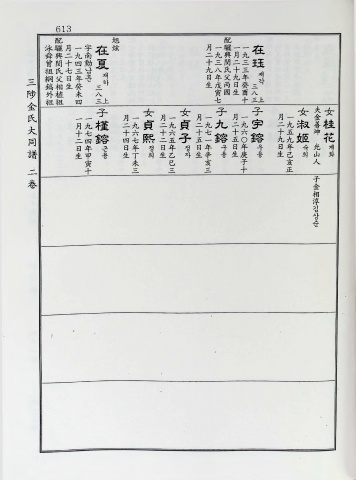 613
女桂花 계화
夫金善坤 光山人
子金相淳 김상순
女淑姬 숙희
一九五九年己亥正
月二十九日生
在珏 재각 三八三上
一九三三年癸酉十
一月二十九日生
配驪興閔氏父丙國
一九三八年戊寅七
月二十九日生
子宇鎔 우용
一九六〇年庚子十
一月二十九日生
子九鎔 구용
一九七一年辛亥三
月二十五日生
女貞子 정자
一九六五年乙巳三
月二十六日生
女貞熙 정희
一九六七年丁未三
月二十四日生
在夏 재하 三八三上
字南勳 남훈
一九四三年癸未四
月二十七日生
配驪興閔氏父相植祖
泳舜曾祖綱鎬外祖
子槿鎔 근용
一九七四年甲寅十
一月十二日生
三陟金氏大同譜 二卷